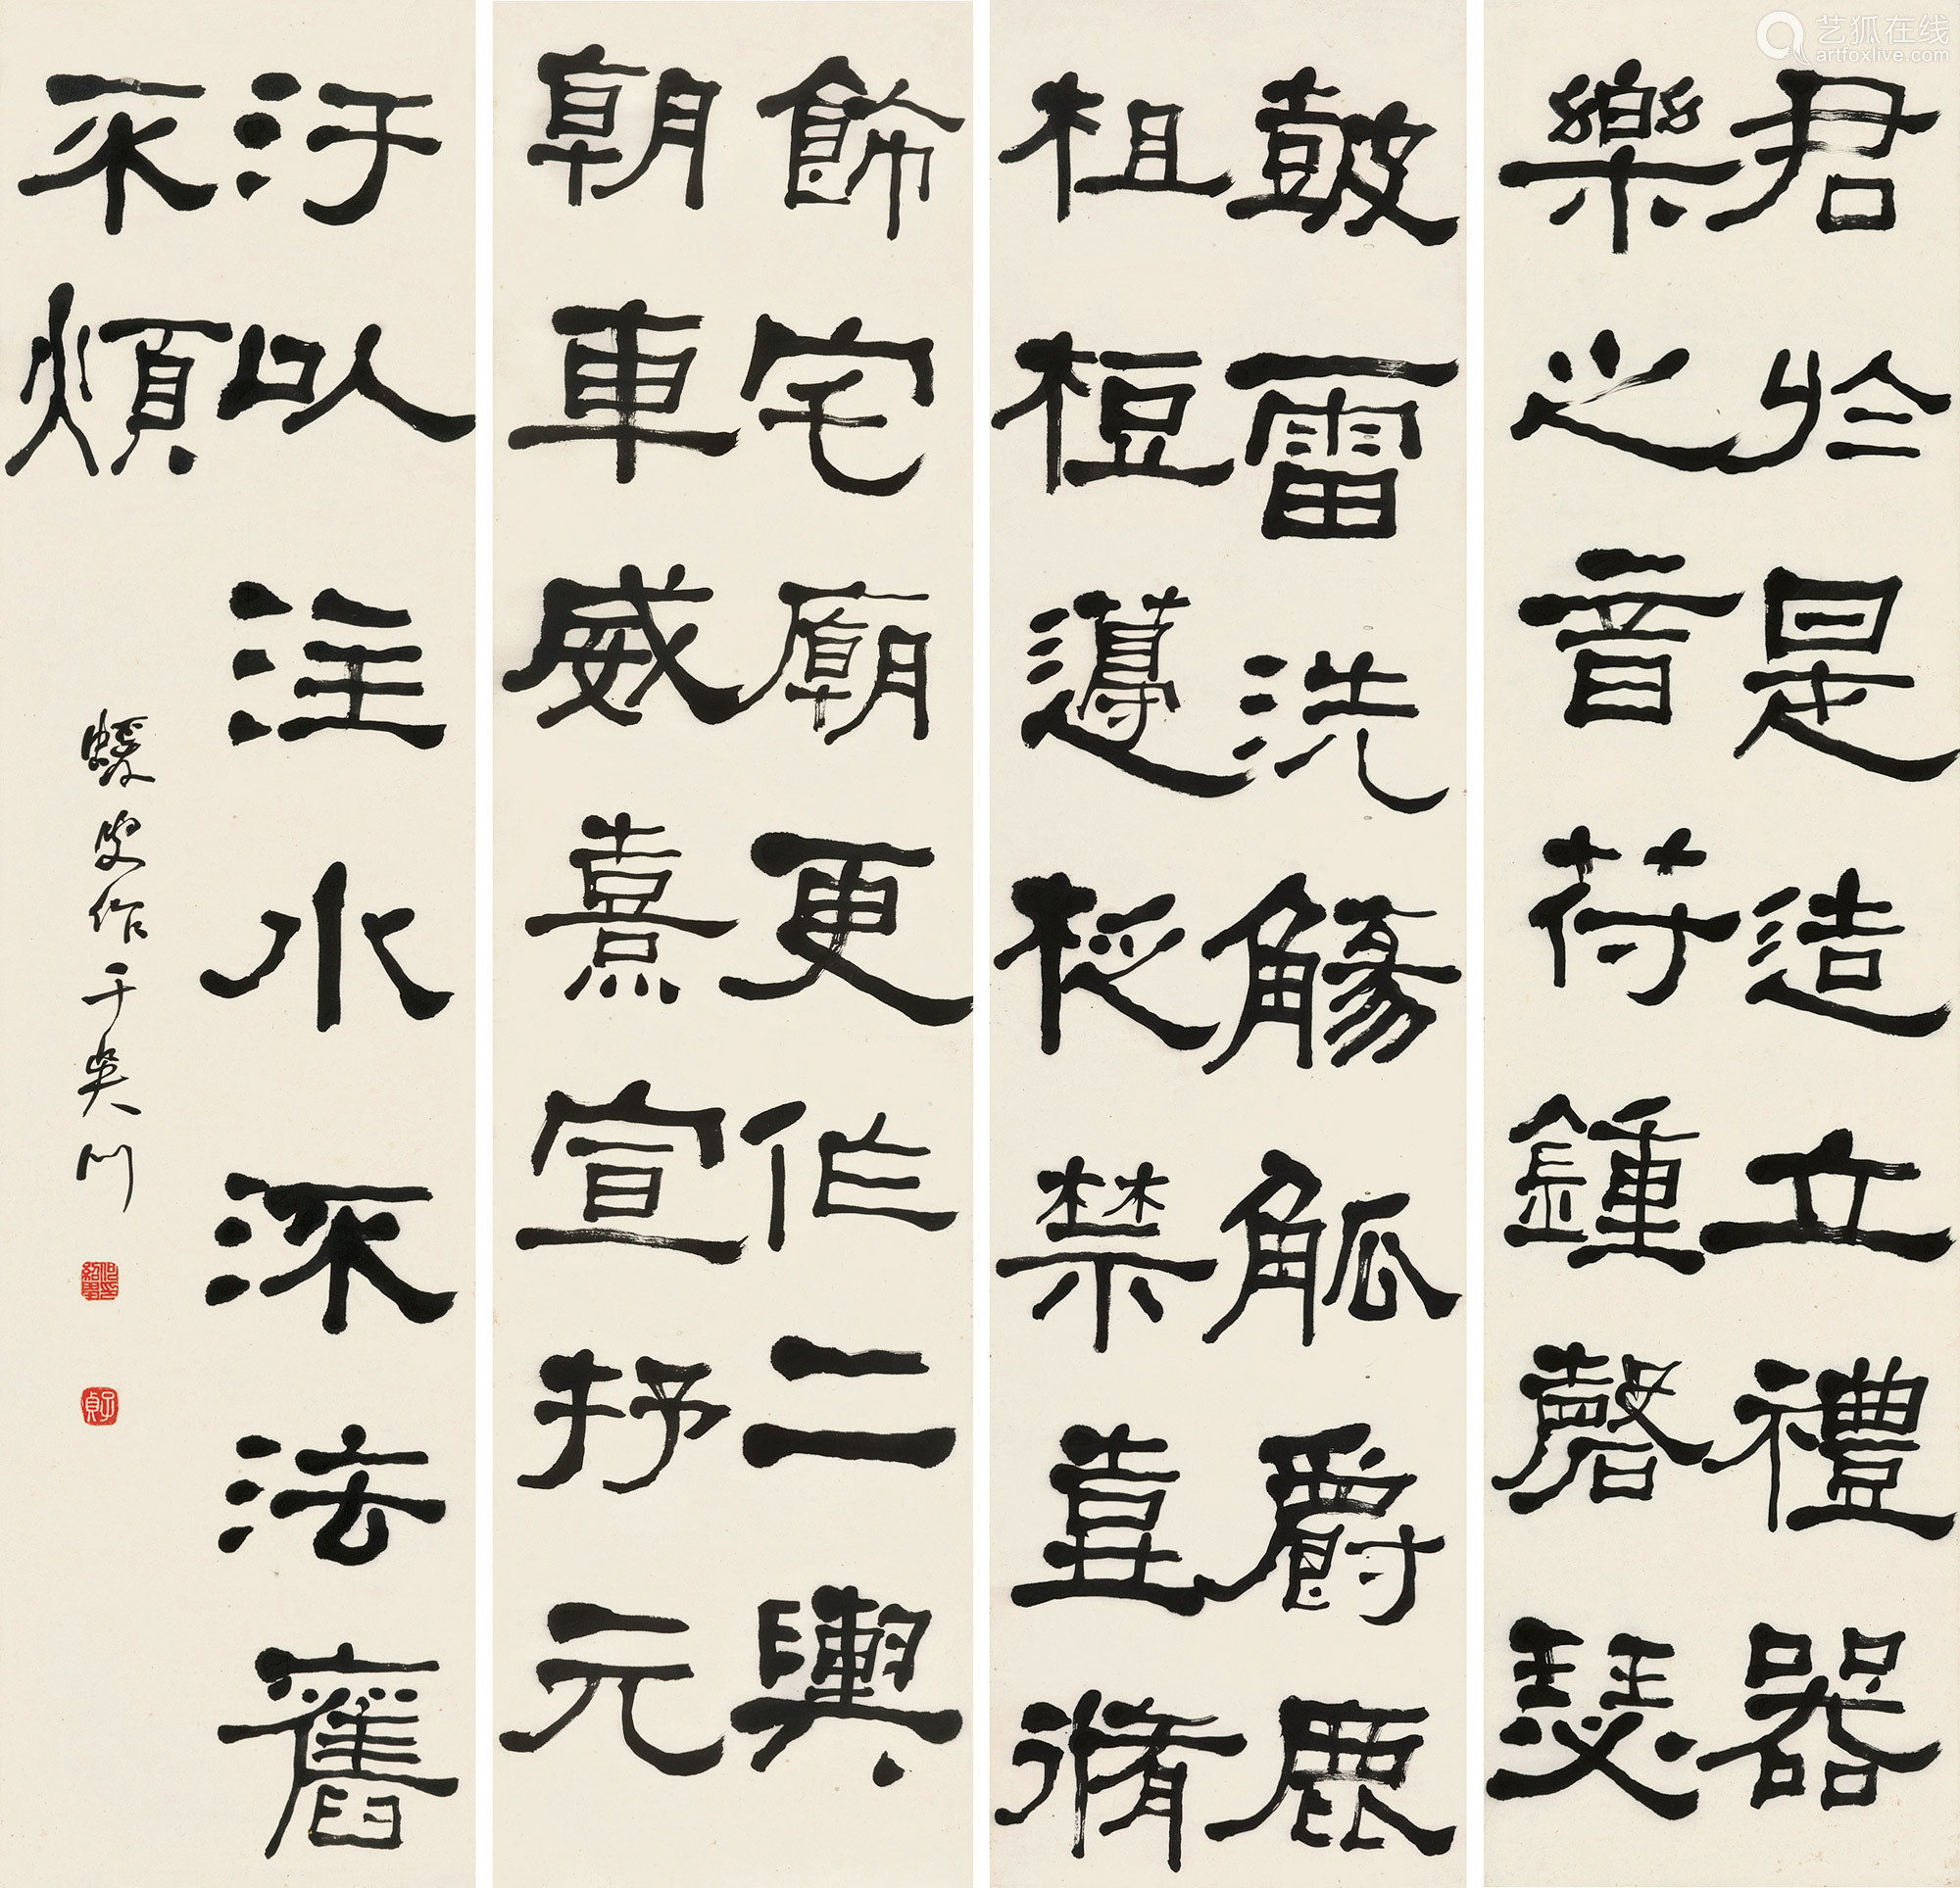 君於是造立禮器
樂之音苻鍾磬瑟
皷雷洗觴觚爵鹿
柤梪籩柉禁壺脩
飾宅廟更作二輿
朝車威熹宣抒元
汙以注水深法舊
不煩
蝯叟作于吳門
何紹基印
子貞
艺狐在线
artfoxlive.com